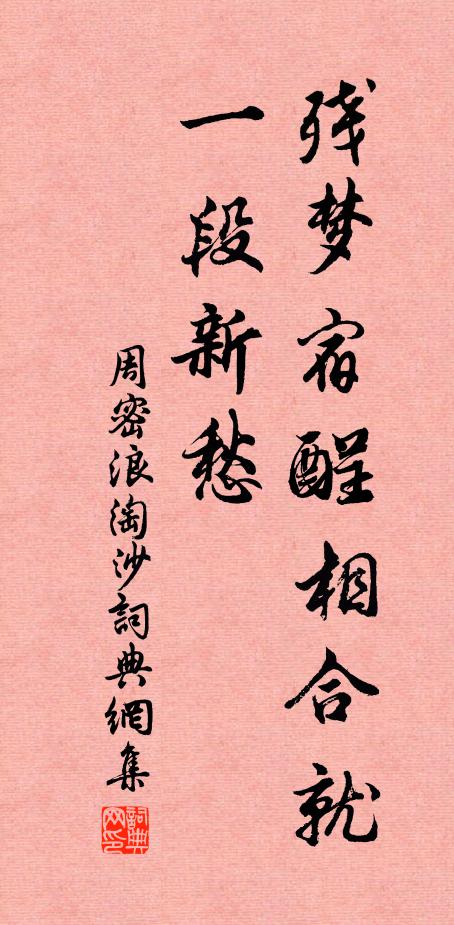 残梦宿酲相合就
一段新愁
周密浪淘沙詞典網集
詞典
网印